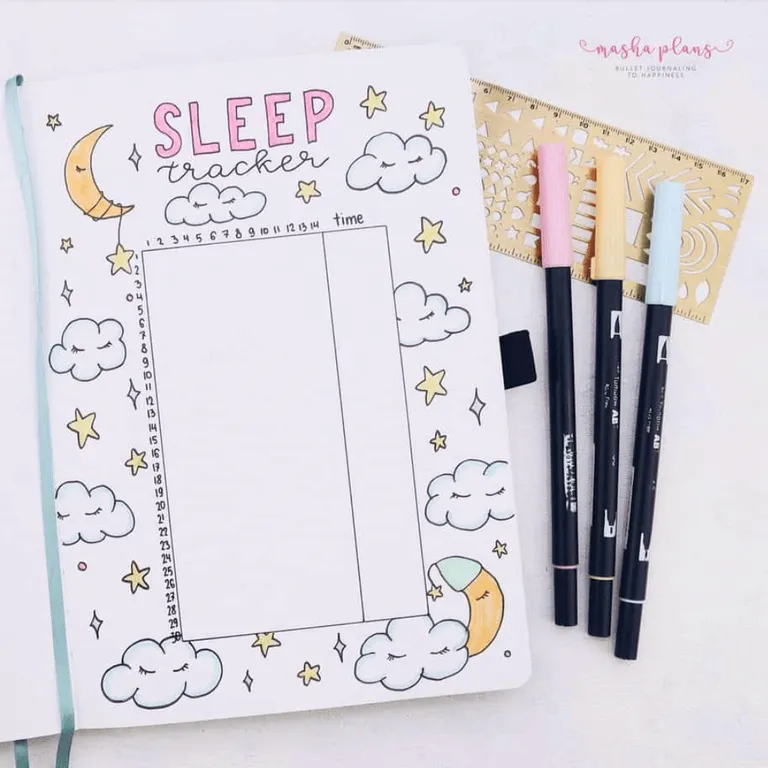 masha plans
BULLET JOURNALING
TO HAPPINESS
SLEEP
tracker
1 2 3 4 5 6 7 8 9 10 11 12 13 14 time
1
2
3
4
5
6
7
8
9
10
11
12
13
14
15
16
17
18
19
20
21
22
23
24
25
26
27
28
29
30
AB
AB